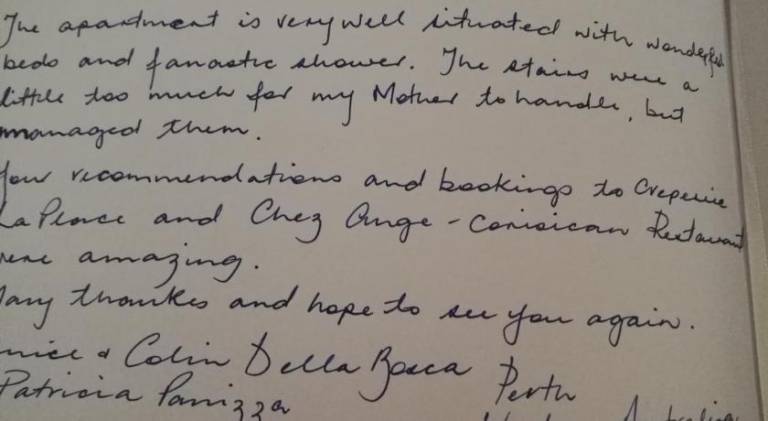 The apartment is very well situated with wonderful
beds and fanastic shower. The stairs were a
little too much for my Mother to handle, but
managed them.
Your recommendations and bookings to Creperie
La Place and Chez Ange - Corisican Restaurant
were amazing.
Many thankes and hope to see you again.
& Colin Della Bosca Perth
Patricia Panizza Australia